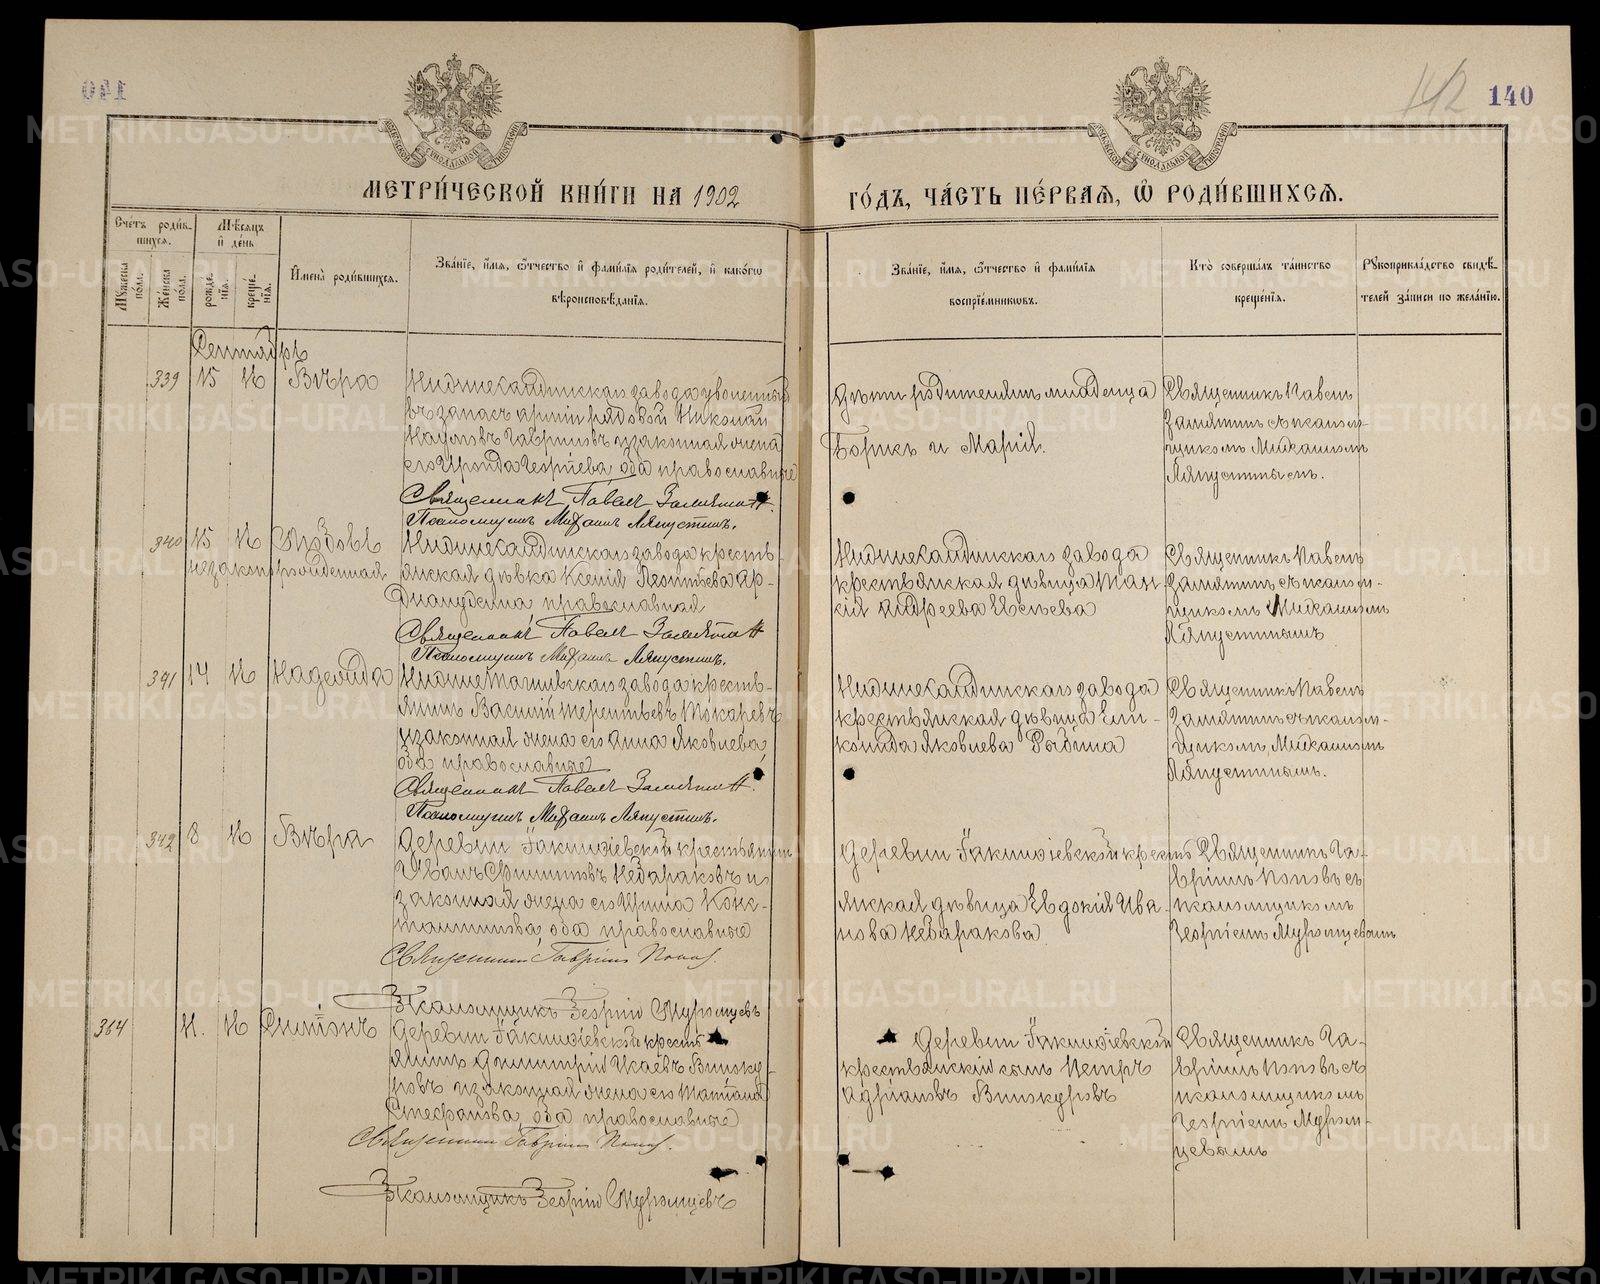 140
142
МЕТРИ́ЧЕСКОЙ КНИ́ГИ НА 1902
ГО́ДЪ, ЧА́СТЬ ПЕ́РВАѦ, Ѡ҆ РОДИ́ВШИХСѦ.
Сче́тъ роди́в-
шихсѧ.
Мужеска по́ла.
Же́нска по́ла.
Мѣ́сѧцъ
и҆ де́нь
рожде́нїѧ.
креще́нїѧ.
И҆мена̀ роди́вшихсѧ.
Зва́нїе, и҆́мѧ, ѻ҆́тчество и҆ фами́лїѧ роди́телей, и҆ како́гѡ
вѣроисповѣ́данїѧ.
Зва́нїе, и҆́мѧ, ѻ҆́тчество и҆ фами́лїѧ
воспрїе́мникѡвъ.
Кто̀ соверша́лъ та́инство
креще́нїѧ.
Рукоприкла́дство свидѣ́-
телей за́писи по жела́нїю.
Сентябрь
339 15 16 Вѣра
Нижнесалдинскаго завода уволенный
въ запасъ арміи рядовой Николай
Наумовъ Гавриловъ и законная жена
его Ираида Георгіева, оба православные
Священникъ Павелъ Замятин
Псаломщикъ Михаилъ Ляпустинъ.
Дѣти родителямъ младенца
Борисъ и Марія.
Священникъ Павелъ
Замятинъ съ псалом-
щикомъ Михаиломъ
Ляпустинымъ.
340 15 16 Любовь
незаконнорожденная
Нижнесалдинскаго завода кресть-
янская дѣвка Ксенія Леонтьева
православная
Священникъ Павелъ Замятин
Псаломщикъ Михаилъ Ляпустинъ.
Нижнесалдинскаго завода
крестьянская дѣвица
Андреева Евсеева
Священникъ Павелъ
Замятинъ съ псалом-
щикомъ Михаиломъ
Ляпустинымъ
341 14 16 Надежда
Нижнетагильскаго завода кресть-
янинъ Василій Терентьевъ Токаревъ
и законная жена его Анна Яковлева,
оба православные
Священникъ Павелъ Замятин.
Псаломщикъ Михаилъ Ляпустинъ.
Нижнесалдинскаго завода
крестьянская дѣвица Ели-
конида Яковлева
Священникъ Павелъ
Замятинъ съ псалом-
щикомъ Михаиломъ
Ляпустинымъ.
342 8 16 Вѣра
Деревни Акинфіевской крестьянинъ
Иванъ Филипповъ и
законная жена его Ирина Конс-
тантинова, оба православные
Священникъ Гавріилъ Попов.
Псаломщикъ Георгій Муромцевъ
Деревни Акинфіевской кресть
янская дѣвица Евдокія Ива-
нова
Священникъ Га-
вріилъ Поповъ съ
псаломщикомъ
Георгіемъ Муромцевымъ
364 11. 16
Деревни Акинфіевской кресть
янинъ Димитрій Исаевъ Виноку-
ровъ и законная жена его Татіана
Стефанова, оба православные
Священник Гавріил Попов.
Псаломщикъ Георгій Муромцевъ
Деревни Акинфіевской
крестьянскій сынъ Петръ
Адріановъ Винокуровъ
Священникъ Га-
вріилъ Поповъ съ
псаломщикомъ
Георгіемъ Муром-
цевымъ
METRIKI.GASO-URAL.RU